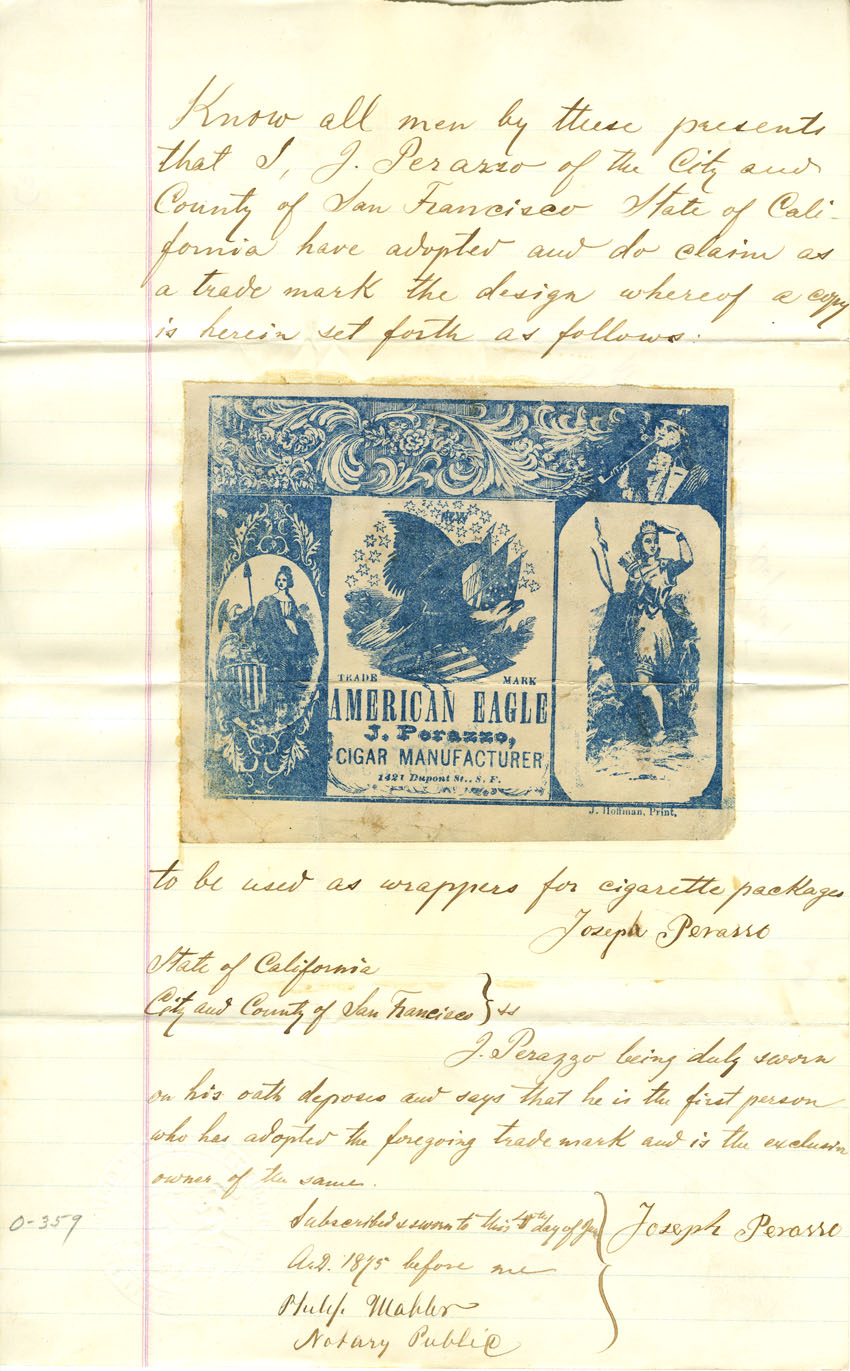 Know all men by these presents
that I, J. Perazzo of the City and
County of San Francisco State of Cali-
fornia have adopted and do claim as
a trade mark the design whereof a copy
is herein set forth as follows:
TRADE MARK
AMERICAN EAGLE
J. Perazzo,
CIGAR MANUFACTURER
1421 Dupont St., S. F.
J. Hoffman, Print,
to be used as wrappers for cigarette packages
Joseph Perasso
State of California
City and County of San Francisco } ss
J. Perazzo being duly sworn
on his oath deposes and says that he is the first person
who has adopted the foregoing trade mark and is the exclusive
owner of the same.
Subscribed & sworn to this day of Jan
A.D. 1875 before me
Philip Mahler
Notary Public
Joseph Perasso
0-359